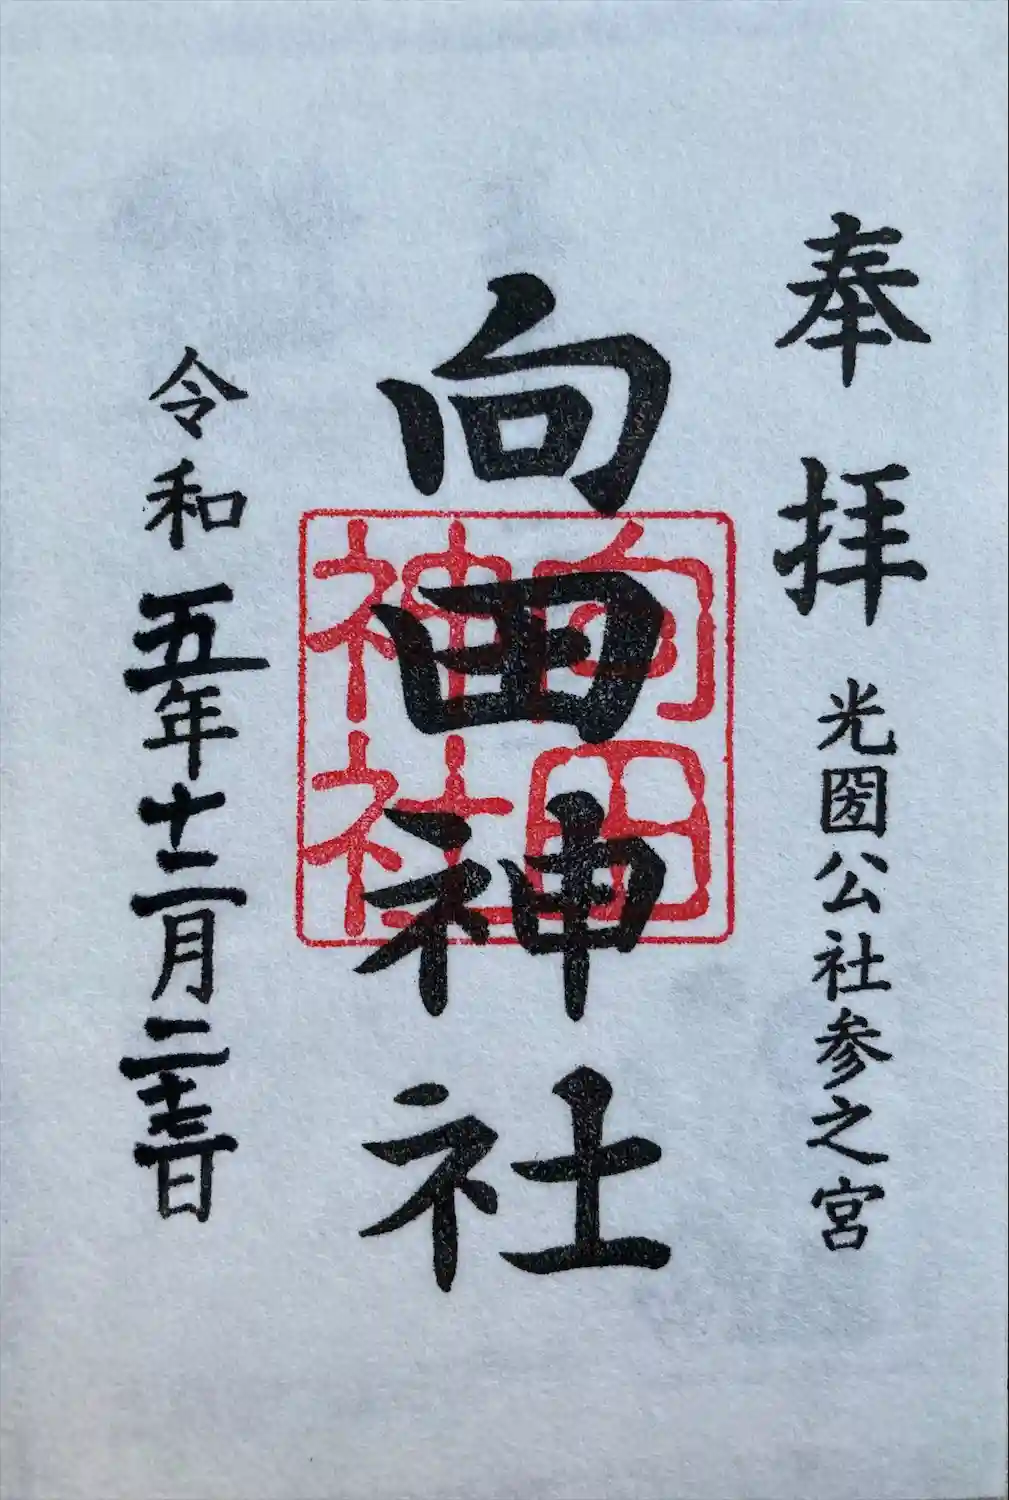 奉拝 光圀公社参之宮
向田神社
向田
神社
令和五年十二月二十三日